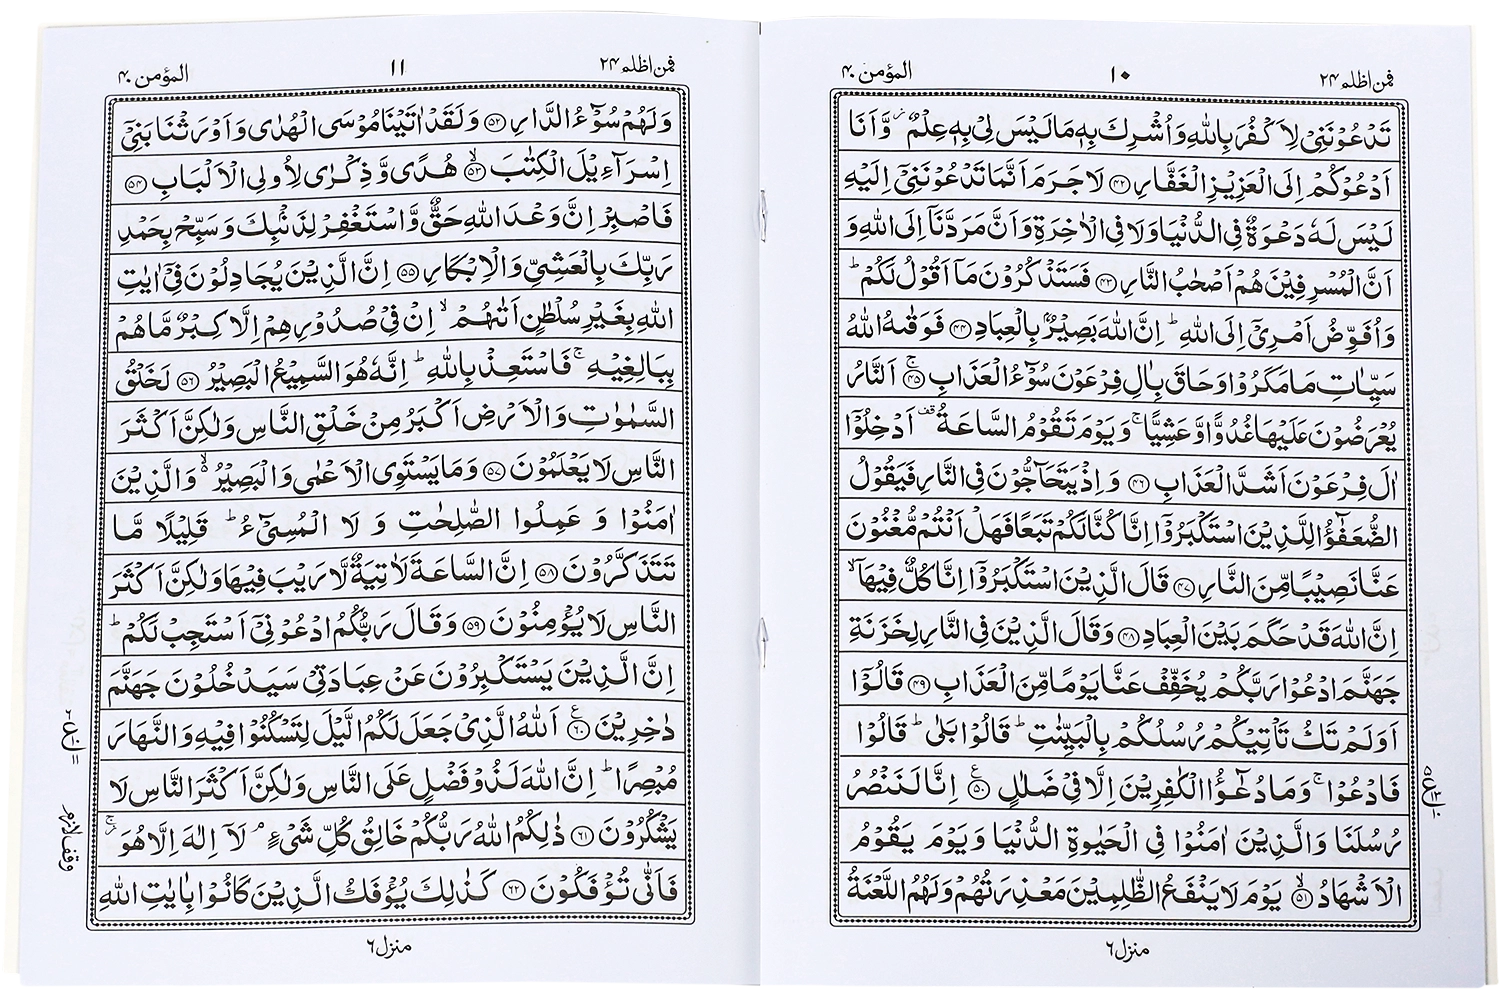 فمن اظلم ٢٤
١٠
المؤمن ٤٠
تَدْعُوْنَنِیْ لِاَكْفُرَ بِاللّٰهِ وَاُشْرِكَ بِهٖ مَا لَیْسَ لِیْ بِهٖ عِلْمٌ٘ وَّاَنَا
اَدْعُوْكُمْ اِلَی الْعَزِیْزِ الْغَفَّارِ ﴿٤٢﴾ لَا جَرَمَ اَنَّمَا تَدْعُوْنَنِیْۤ اِلَیْهِ
لَیْسَ لَهٗ دَعْوَةٌ فِی الدُّنْیَا وَلَا فِی الْاٰخِرَةِ وَاَنَّ مَرَدَّنَاۤ اِلَی اللّٰهِ وَ
اَنَّ الْمُسْرِفِیْنَ هُمْ اَصْحٰبُ النَّارِ ﴿٤٣﴾ فَسَتَذْكُرُوْنَ مَاۤ اَقُوْلُ لَكُمْ ؕ
وَاُفَوِّضُ اَمْرِیْۤ اِلَی اللّٰهِ ؕ اِنَّ اللّٰهَ بَصِیْرٌۢ بِالْعِبَادِ ﴿٤٤﴾ فَوَقٰىهُ اللّٰهُ
سَیِّاٰتِ مَا مَكَرُوْا وَحَاقَ بِاٰلِ فِرْعَوْنَ سُوْٓءُ الْعَذَابِ ۚ﴿٤٥﴾ اَلنَّارُ
یُعْرَضُوْنَ عَلَیْهَا غُدُوًّا وَّعَشِیًّا ۚ وَیَوْمَ تَقُوْمُ السَّاعَةُ قف اَدْخِلُوْۤا
اٰلَ فِرْعَوْنَ اَشَدَّ الْعَذَابِ ﴿٤٦﴾ وَاِذْ یَتَحَآجُّوْنَ فِی النَّارِ فَیَقُوْلُ
الضُّعَفٰٓؤُا لِلَّذِیْنَ اسْتَكْبَرُوْۤا اِنَّا كُنَّا لَكُمْ تَبَعًا فَهَلْ اَنْتُمْ مُّغْنُوْنَ
عَنَّا نَصِیْبًا مِّنَ النَّارِ ﴿٤٧﴾ قَالَ الَّذِیْنَ اسْتَكْبَرُوْۤا اِنَّا كُلٌّ فِیْهَاۤ ۙ
اِنَّ اللّٰهَ قَدْ حَكَمَ بَیْنَ الْعِبَادِ ﴿٤٨﴾ وَقَالَ الَّذِیْنَ فِی النَّارِ لِخَزَنَةِ
جَهَنَّمَ ادْعُوْا رَبَّكُمْ یُخَفِّفْ عَنَّا یَوْمًا مِّنَ الْعَذَابِ ﴿٤٩﴾ قَالُوْۤا
اَوَلَمْ تَكُ تَاْتِیْكُمْ رُسُلُكُمْ بِالْبَیِّنٰتِ ؕ قَالُوْا بَلٰی ؕ قَالُوْا
فَادْعُوْا ۚ وَمَا دُعٰٓؤُا الْكٰفِرِیْنَ اِلَّا فِیْ ضَلٰلٍ ﴿٥٠﴾ع اِنَّا لَنَنْصُرُ
رُسُلَنَا وَالَّذِیْنَ اٰمَنُوْا فِی الْحَیٰوةِ الدُّنْیَا وَیَوْمَ یَقُوْمُ
الْاَشْهَادُ ۙ﴿٥١﴾ یَوْمَ لَا یَنْفَعُ الظّٰلِمِیْنَ مَعْذِرَتُهُمْ وَلَهُمُ اللَّعْنَةُ
٥
ع ١٣
١٠
منزل ٦
فمن اظلم ٢٤
١١
المؤمن ٤٠
وَلَهُمْ سُوْٓءُ الدَّارِ ﴿٥٢﴾ وَلَقَدْ اٰتَیْنَا مُوْسَی الْهُدٰی وَاَوْرَثْنَا بَنِیْۤ
اِسْرَآءِیْلَ الْكِتٰبَ ۙ﴿٥٣﴾ هُدًی وَّذِكْرٰی لِاُولِی الْاَلْبَابِ ﴿٥٤﴾
فَاصْبِرْ اِنَّ وَعْدَ اللّٰهِ حَقٌّ وَّاسْتَغْفِرْ لِذَنْۢبِكَ وَسَبِّحْ بِحَمْدِ
رَبِّكَ بِالْعَشِیِّ وَالْاِبْكَارِ ﴿٥٥﴾ اِنَّ الَّذِیْنَ یُجَادِلُوْنَ فِیْۤ اٰیٰتِ
اللّٰهِ بِغَیْرِ سُلْطٰنٍ اَتٰىهُمْ ۙ اِنْ فِیْ صُدُوْرِهِمْ اِلَّا كِبْرٌ مَّا هُمْ
بِبَالِغِیْهِ ۚ فَاسْتَعِذْ بِاللّٰهِ ؕ اِنَّهٗ هُوَ السَّمِیْعُ الْبَصِیْرُ ﴿٥٦﴾ لَخَلْقُ
السَّمٰوٰتِ وَالْاَرْضِ اَكْبَرُ مِنْ خَلْقِ النَّاسِ وَلٰكِنَّ اَكْثَرَ
النَّاسِ لَا یَعْلَمُوْنَ ﴿٥٧﴾ وَمَا یَسْتَوِی الْاَعْمٰی وَالْبَصِیْرُ ۙ۬ وَالَّذِیْنَ
اٰمَنُوْا وَ عَمِلُوا الصّٰلِحٰتِ وَ لَا الْمُسِیْٓءُ ؕ قَلِیْلًا مَّا
تَتَذَكَّرُوْنَ ﴿٥٨﴾ اِنَّ السَّاعَةَ لَاٰتِیَةٌ لَّا رَیْبَ فِیْهَا وَلٰكِنَّ اَكْثَرَ
النَّاسِ لَا یُؤْمِنُوْنَ ﴿٥٩﴾ وَقَالَ رَبُّكُمُ ادْعُوْنِیْۤ اَسْتَجِبْ لَكُمْ ؕ
اِنَّ الَّذِیْنَ یَسْتَكْبِرُوْنَ عَنْ عِبَادَتِیْ سَیَدْخُلُوْنَ جَهَنَّمَ
دٰخِرِیْنَ ﴿٦٠﴾ع اَللّٰهُ الَّذِیْ جَعَلَ لَكُمُ الَّیْلَ لِتَسْكُنُوْا فِیْهِ وَالنَّهَارَ
مُبْصِرًا ؕ اِنَّ اللّٰهَ لَذُوْ فَضْلٍ عَلَی النَّاسِ وَلٰكِنَّ اَكْثَرَ النَّاسِ لَا
یَشْكُرُوْنَ ﴿٦١﴾ ذٰلِكُمُ اللّٰهُ رَبُّكُمْ خَالِقُ كُلِّ شَیْءٍ ۘ لَاۤ اِلٰهَ اِلَّا هُوَ ؗۚ
فَاَنّٰی تُؤْفَكُوْنَ ﴿٦٢﴾ كَذٰلِكَ یُؤْفَكُ الَّذِیْنَ كَانُوْا بِاٰیٰتِ اللّٰهِ
٦
ع ١٠
١١
وقف لازم
منزل ٦